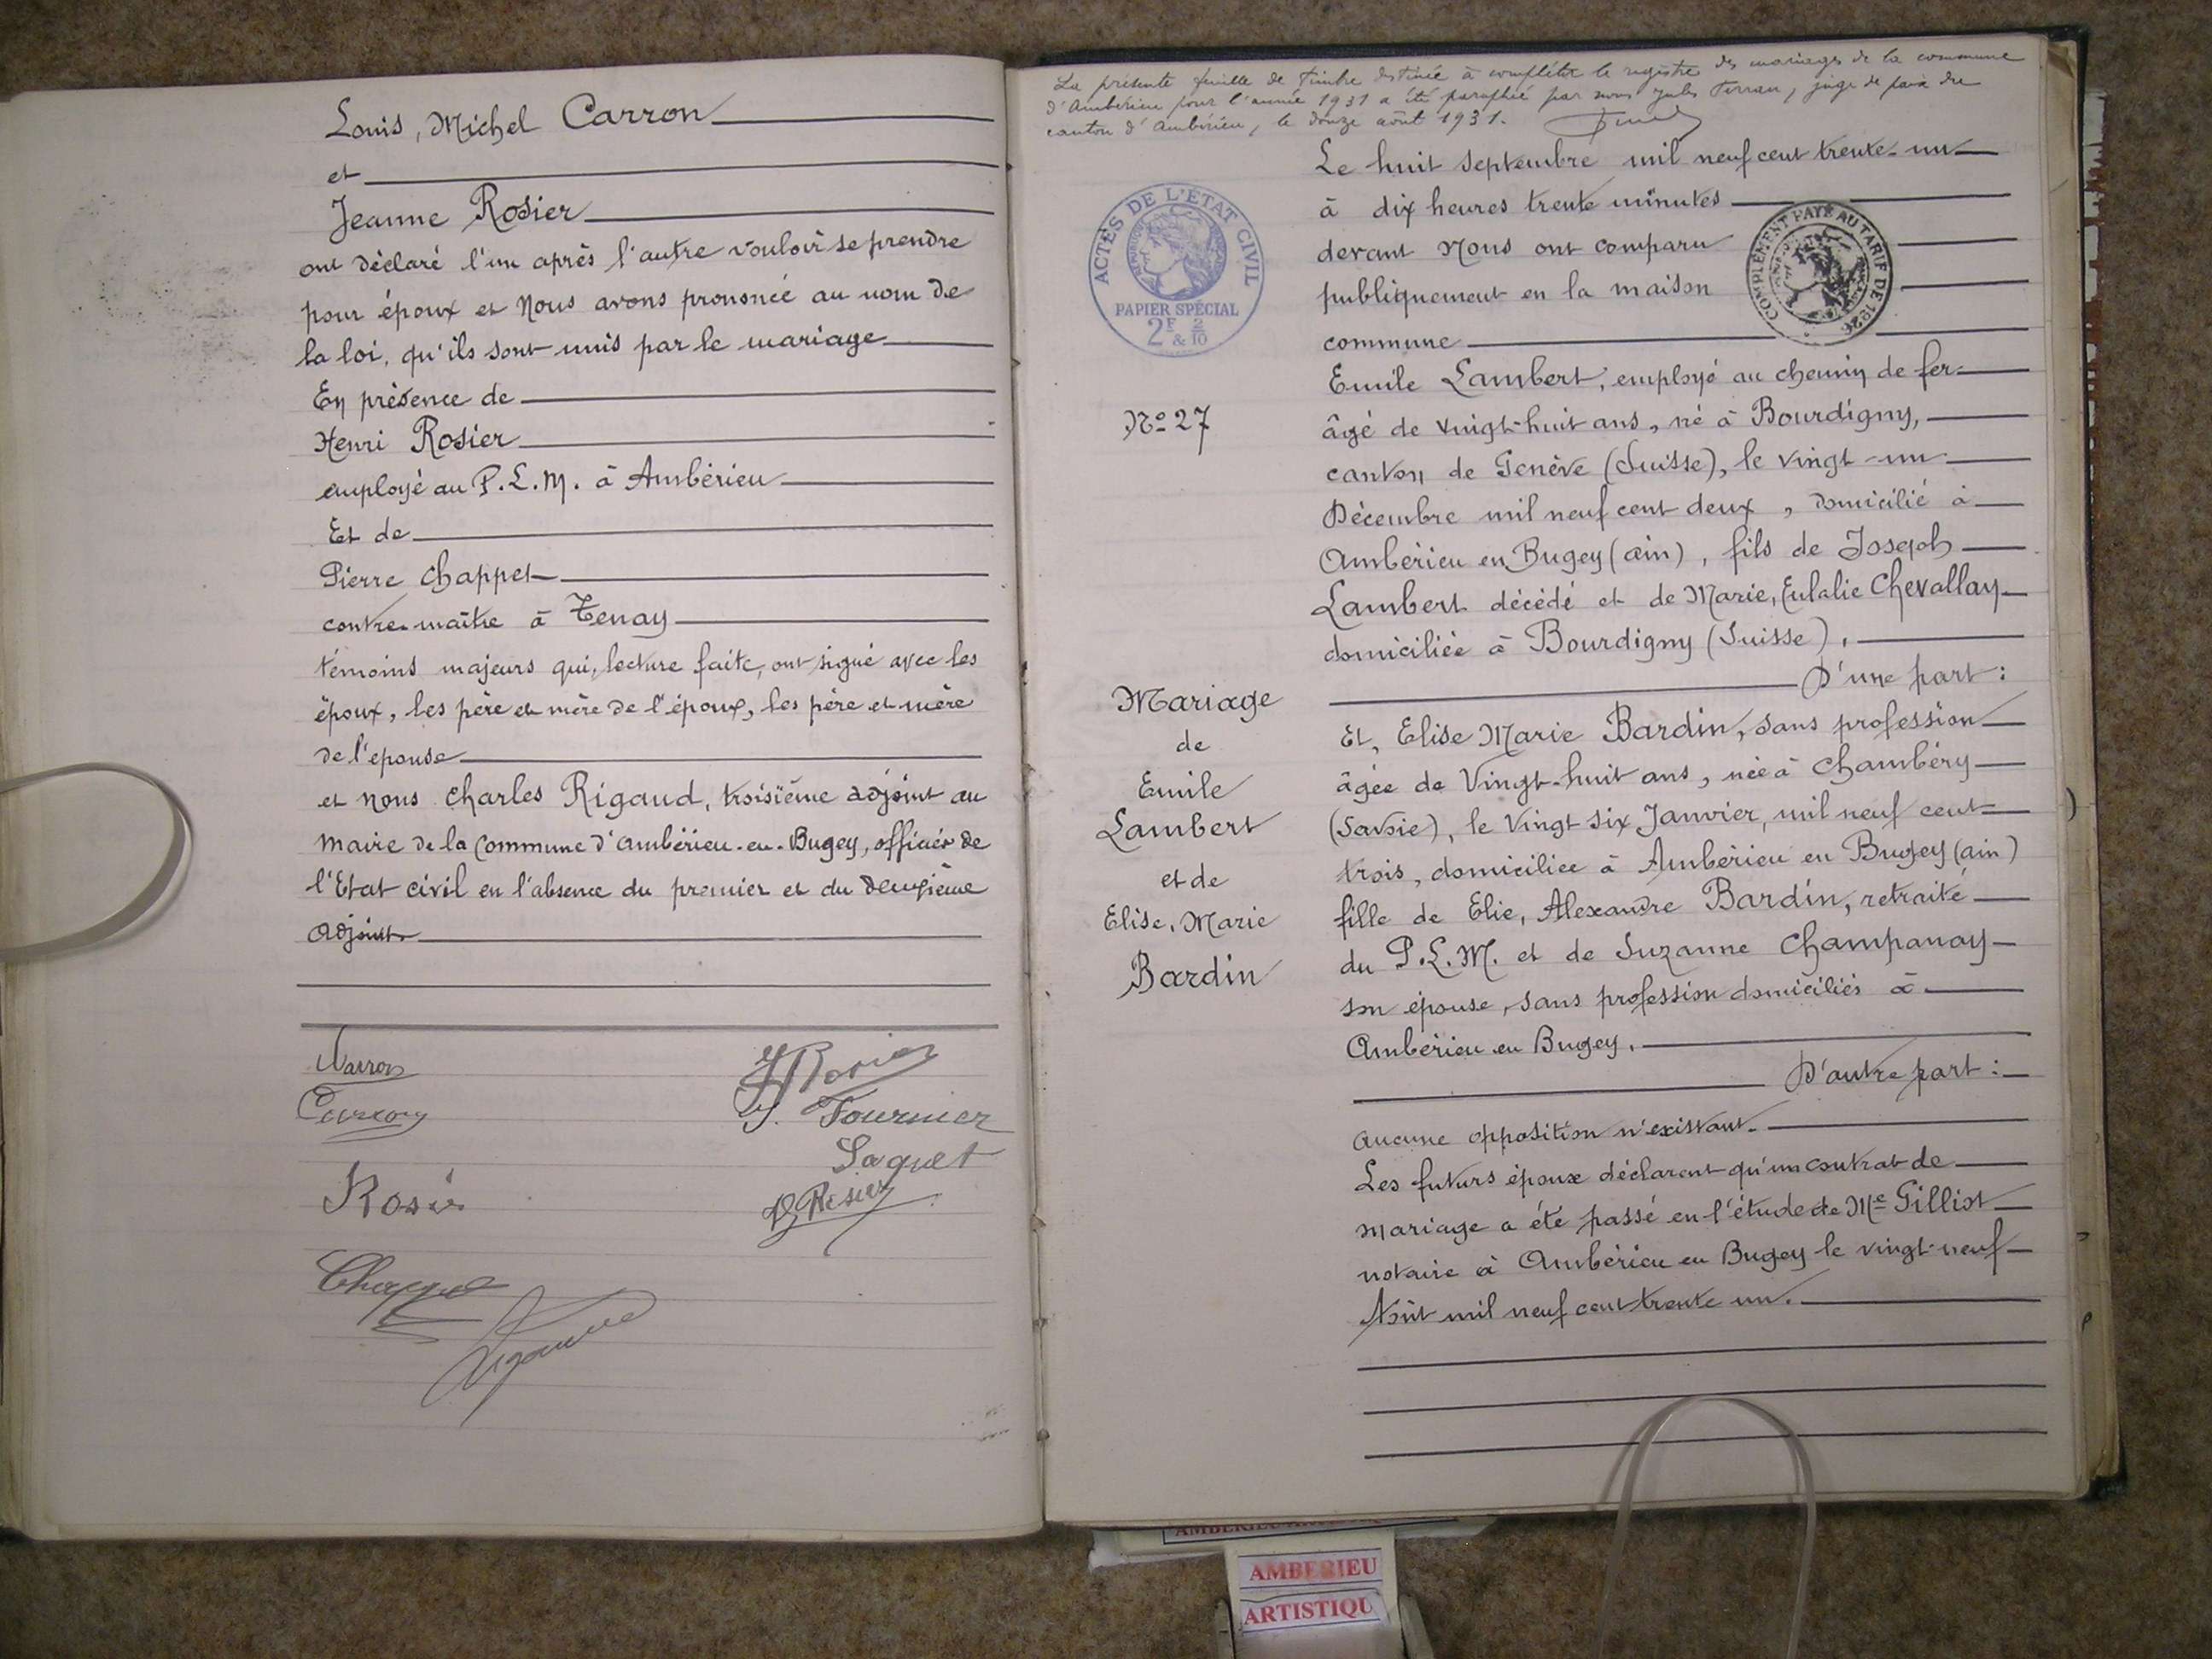 Louis, Michel Carron
et
Jeanne Rosier
ont déclaré l'un après l'autre vouloir se prendre
pour époux et Nous avons prononcé au nom de
la loi, qu'ils sont unis par le mariage
En présence de
Henri Rosier
employé au P.L.M. à Ambérieu
Et de
Pierre Chappet
contre-maître à Tenay
témoins majeurs qui, lecture faite, ont signé avec les
époux, les père et mère de l'époux, les père et mère
de l'épouse
et nous Charles Rigaud, troisième adjoint au
Maire de la Commune d'Ambérieu-en-Bugey, officier de
l'Etat civil en l'absence du premier et du deuxième
adjoint
Carron
Rosier
J. Fournier
Saguet
La présente feuille de timbre destinée à compléter le registre des mariages de la commune
d'Ambérieu pour l'année 1931 a été paraphée par nous Jules Ferran, juge de paix du
canton d'Ambérieu, le douze août 1931.
ACTES DE L'ETAT CIVIL
PAPIER SPÉCIAL
2F & 2/10
COMPLÉMENT PAYÉ AU TARIF DE 1926
No 27
Mariage
de
Emile
Lambert
et de
Elise, Marie
Bardin
Le huit Septembre mil neuf cent trente-un
à dix heures trente minutes
devant Nous ont comparu
publiquement en la maison
commune
Emile Lambert, employé au chemin de fer
âgé de vingt-huit ans, né à Bourdigny,
canton de Genève (Suisse), le vingt-un
Décembre mil neuf cent deux, domicilié à
Ambérieu en Bugey (Ain), fils de Joseph
Lambert décédé et de Marie, Eulalie Chevallay
domiciliée à Bourdigny (Suisse),
D'une part:
Et, Elise Marie Bardin, sans profession
âgée de Vingt-huit ans, née à Chambéry
(Savoie), le Vingt six Janvier, mil neuf cent
trois, domiciliée à Ambérieu en Bugey (Ain)
fille de Elie, Alexandre Bardin, retraité
du P.L.M. et de Suzanne Champanay
son épouse, sans profession domiciliés à
Ambérieu en Bugey.
D'autre part:
Aucune opposition n'existant.
Les futurs époux déclarent qu'un contrat de
mariage a été passé en l'étude de Me Gilliot
notaire à Ambérieu en Bugey le vingt-neuf
Août mil neuf cent trente un.
AMBERIEU
ARTISTIQU